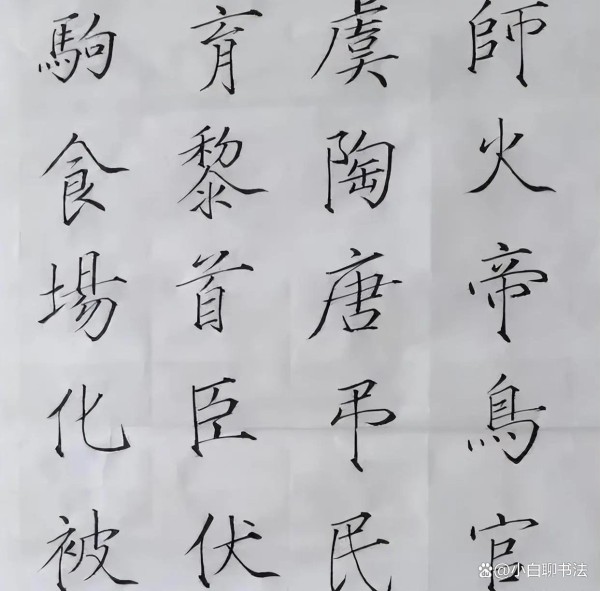 師火帝鳥官
虞陶唐弔民
育黎首臣伏
駒食場化被
小白聊书法